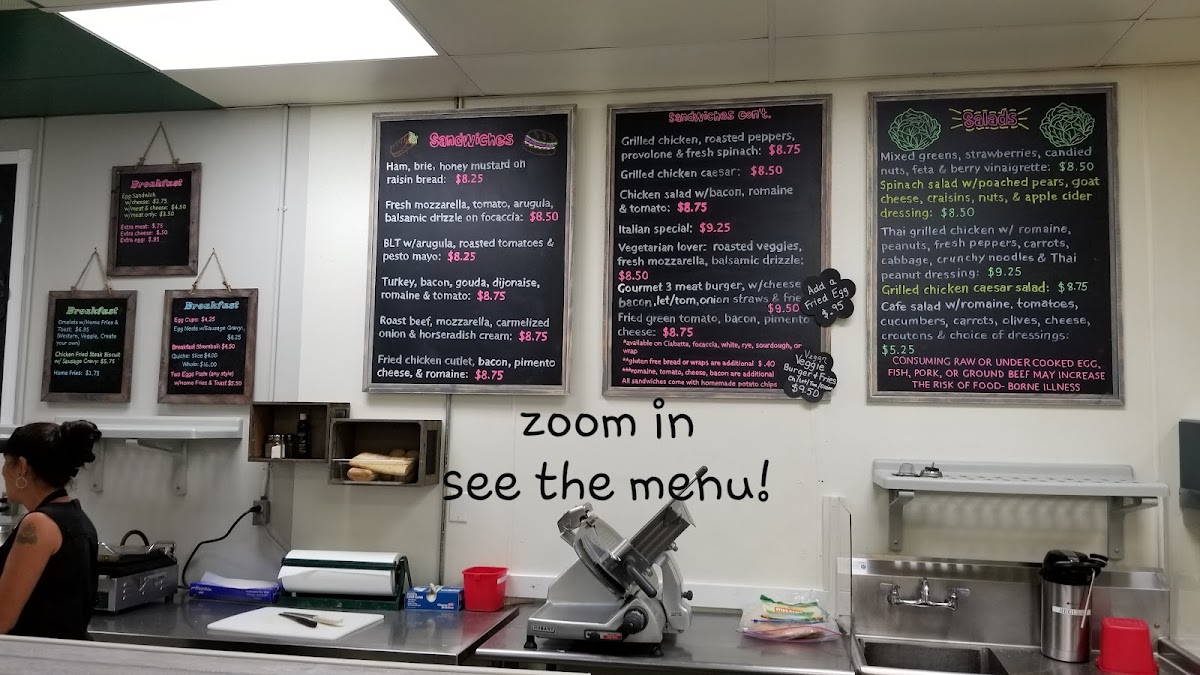 Breakfast
Egg Sandwich
w/cheese: $2.75
w/meat & cheese: $4.50
w/meat only: $3.50
Extra meat: $.75
Extra cheese: $.50
Extra egg: $.95
Breakfast
Omelets w/Home Fries &
Toast: $6.95
(Western, Veggie, Create
your own)
Chicken Fried Steak Biscuit
w/ Sausage Gravy: $5.75
Home Fries: $1.75
Breakfast
Egg Cups: $4.25
Egg Nests w/Sausage Gravy:
$6.25
Breakfast Stromboli: $4.50
Quiche: Slice $4.00
Whole: $16.00
Two Eggs Plate (any style)
w/Home Fries & Toast $5.50
Sandwiches
Ham, brie, honey mustard on
raisin bread: $8.25
Fresh mozzarella, tomato, arugula,
balsamic drizzle on focaccia: $8.50
BLT w/arugula, roasted tomatoes &
pesto mayo: $8.25
Turkey, bacon, gouda, dijonaise,
romaine & tomato: $8.75
Roast beef, mozzarella, carmelized
onion & horseradish cream: $8.75
Fried chicken cutlet, bacon, pimento
cheese, & romaine: $8.75
Sandwiches con't.
Grilled chicken, roasted peppers,
provolone & fresh spinach: $8.75
Grilled chicken caesar: $8.50
Chicken salad w/bacon, romaine
& tomato: $8.75
Italian special: $9.25
Vegetarian lover: roasted veggies,
fresh mozzarella, balsamic drizzle:
$8.50
Gourmet 3 meat burger, w/cheese
bacon,let/tom,onion straws & frie
$9.50
Fried green tomato, bacon, pimento
cheese: $8.75
*available on Ciabatta, focaccia, white, rye, sourdough, or
wrap
**gluten free bread or wraps are additional $.40
***romaine, tomato, cheese, bacon are additional
All sandwiches come with homemade potato chips
Add a
Fried Egg
$.95
Vegan
Veggie
Burger & Fries
$9.50
Salads
Mixed greens, strawberries, candied
nuts, feta & berry vinaigrette: $8.50
Spinach salad w/poached pears, goat
cheese, craisins, nuts, & apple cider
dressing: $8.50
Thai grilled chicken w/ romaine,
peanuts, fresh peppers, carrots,
cabbage, crunchy noodles & Thai
peanut dressing: $9.25
Grilled chicken caesar salad: $8.75
Cafe salad w/romaine, tomatoes,
cucumbers, carrots, olives, cheese,
croutons & choice of dressings:
$5.25
CONSUMING RAW OR UNDER COOKED EGG,
FISH, PORK, OR GROUND BEEF MAY INCREASE
THE RISK OF FOOD- BORNE ILLNESS
zoom in
see the menu!
HOBART